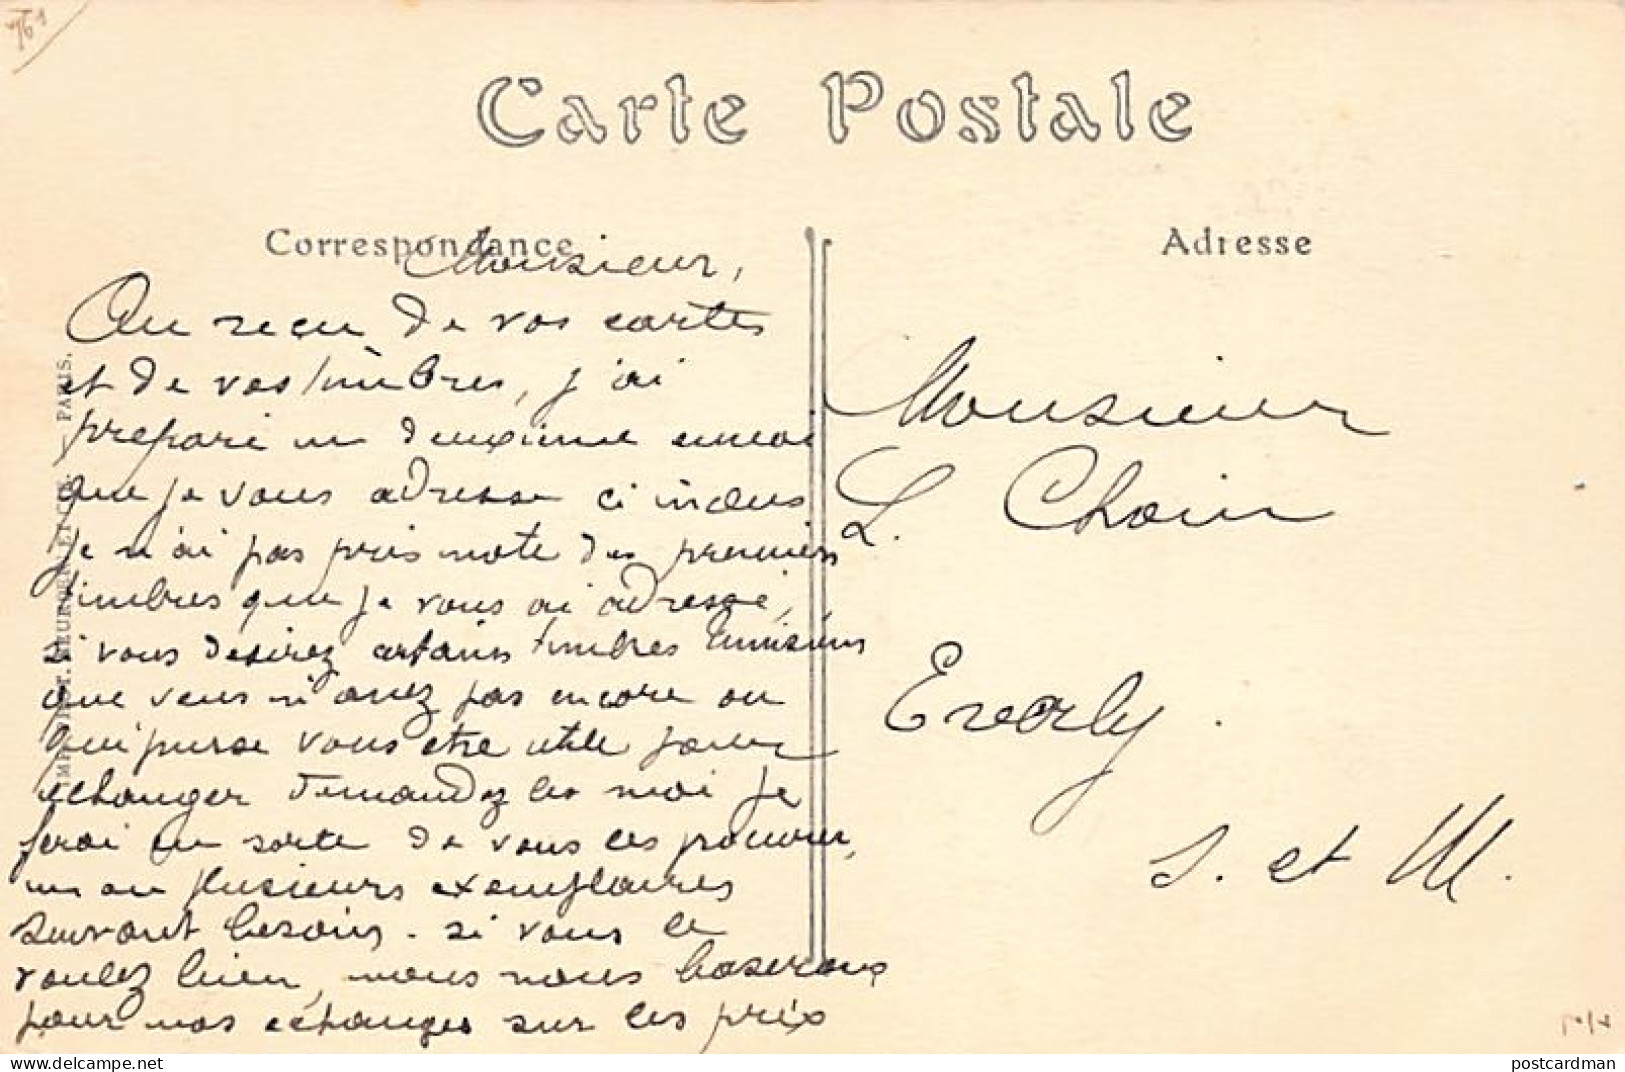 761
Carte Postale
Correspondance
Adresse
Monsieur,
Au reçu de vos cartes
et de vos timbres, j'ai
préparé un deuxième envoi
que je vous adresse ci inclus
je n'ai pas pris note des premiers
timbres que je vous ai adressé,
si vous desirez certains timbres Tunisiens
que vous n'avez pas encore ou
qui puisse vous etre utile pour
echanger demandez les moi je
ferai en sorte de vous les procurer,
un ou plusieurs exemplaires
suivant besoins. si vous le
voulez bien, nous nous baserons
pour nos échanges sur les prix
Monsieur
L. Choin
Everly.
S. et M.
PARIS.
postcardman